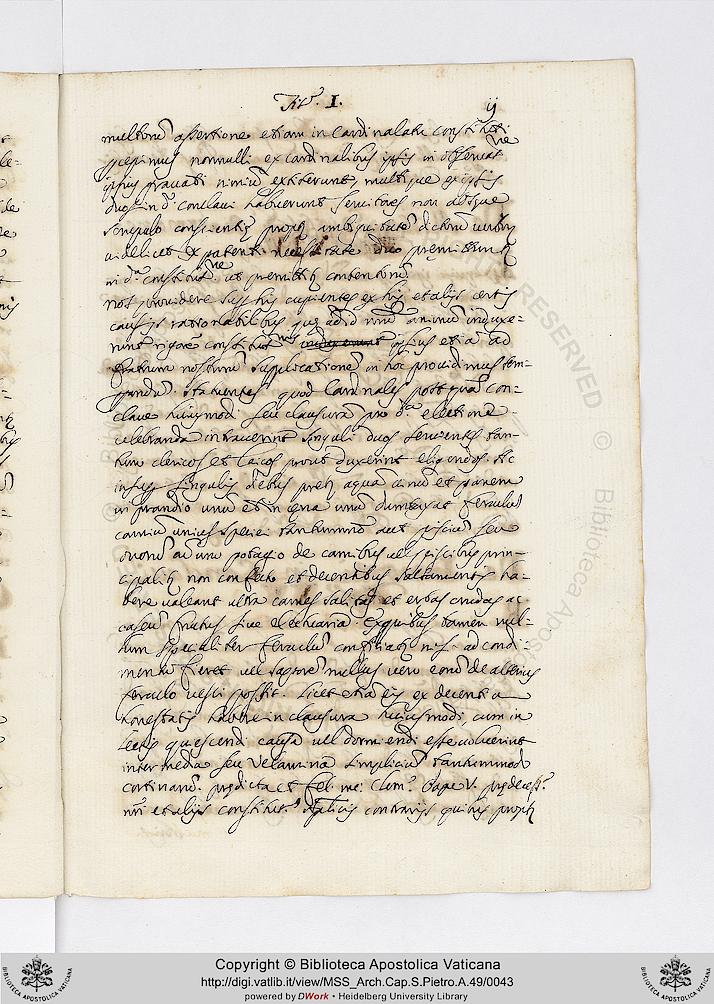 Tit. I.
ij
multorum assertione etiam in Cardinalatu constituti
percepimus nonnulli ex cardinalibus ipsis in observat
ne
ipsius gravati nimium extiterunt, multique ex ipsis
duos in d. conclavi habuerunt servitores non absque
scrupulo conscientiæ propter ambiguitatem dictorum verborum
videlicet ex patenti necessitate duo
in d. constitut ne ut premittitur contentorum
nos providere super his cupientes ex his et alijs certis
causis rationabilibus quæ ad id nrum animum induxe=
runt rigorem constitut nis ipsius etiam ad
fratrum nostrorum supplicationem in hoc providimus tem=
perandum statuentes quod Cardinales postquam con=
clave huiusmodi seu clausuram pro electione
celebranda intraverint singuli duos servientes tan=
tum clericos et laicos prout duxerint eligendos. Ac
in singulis diebus preter aquam vinum et panem
in prandio unum et in cena unum dumtaxat ferculum
carnium unius speciei tantummodo aut piscium seu
ovorum cum uno potagio de carnibus vel piscibus prin=
cipaliter non confecto et decentibus salsamentis ha=
bere valeant ultra carnes salitas et erbas crudas ac
caseum fructus sive electuaria. Ex quibus tamen nul=
lum specialiter ferculum conficiatur nisi ad condi=
mentum fieret vel saporem nullus vero eorum de alterius
ferculo vesci possit. Licet etiam eis ex decentia
honestatis habere in clausura huiusmodi, cum in
lectis quiescendi causa vel dormiendi esse voluerint
intermedia seu velamina simplicium tantummodo
cortinarum. predicta et fel: me: Clem. Papæ V. predecess.
nri et alijs constitut. Aplicis contrarijs quibus